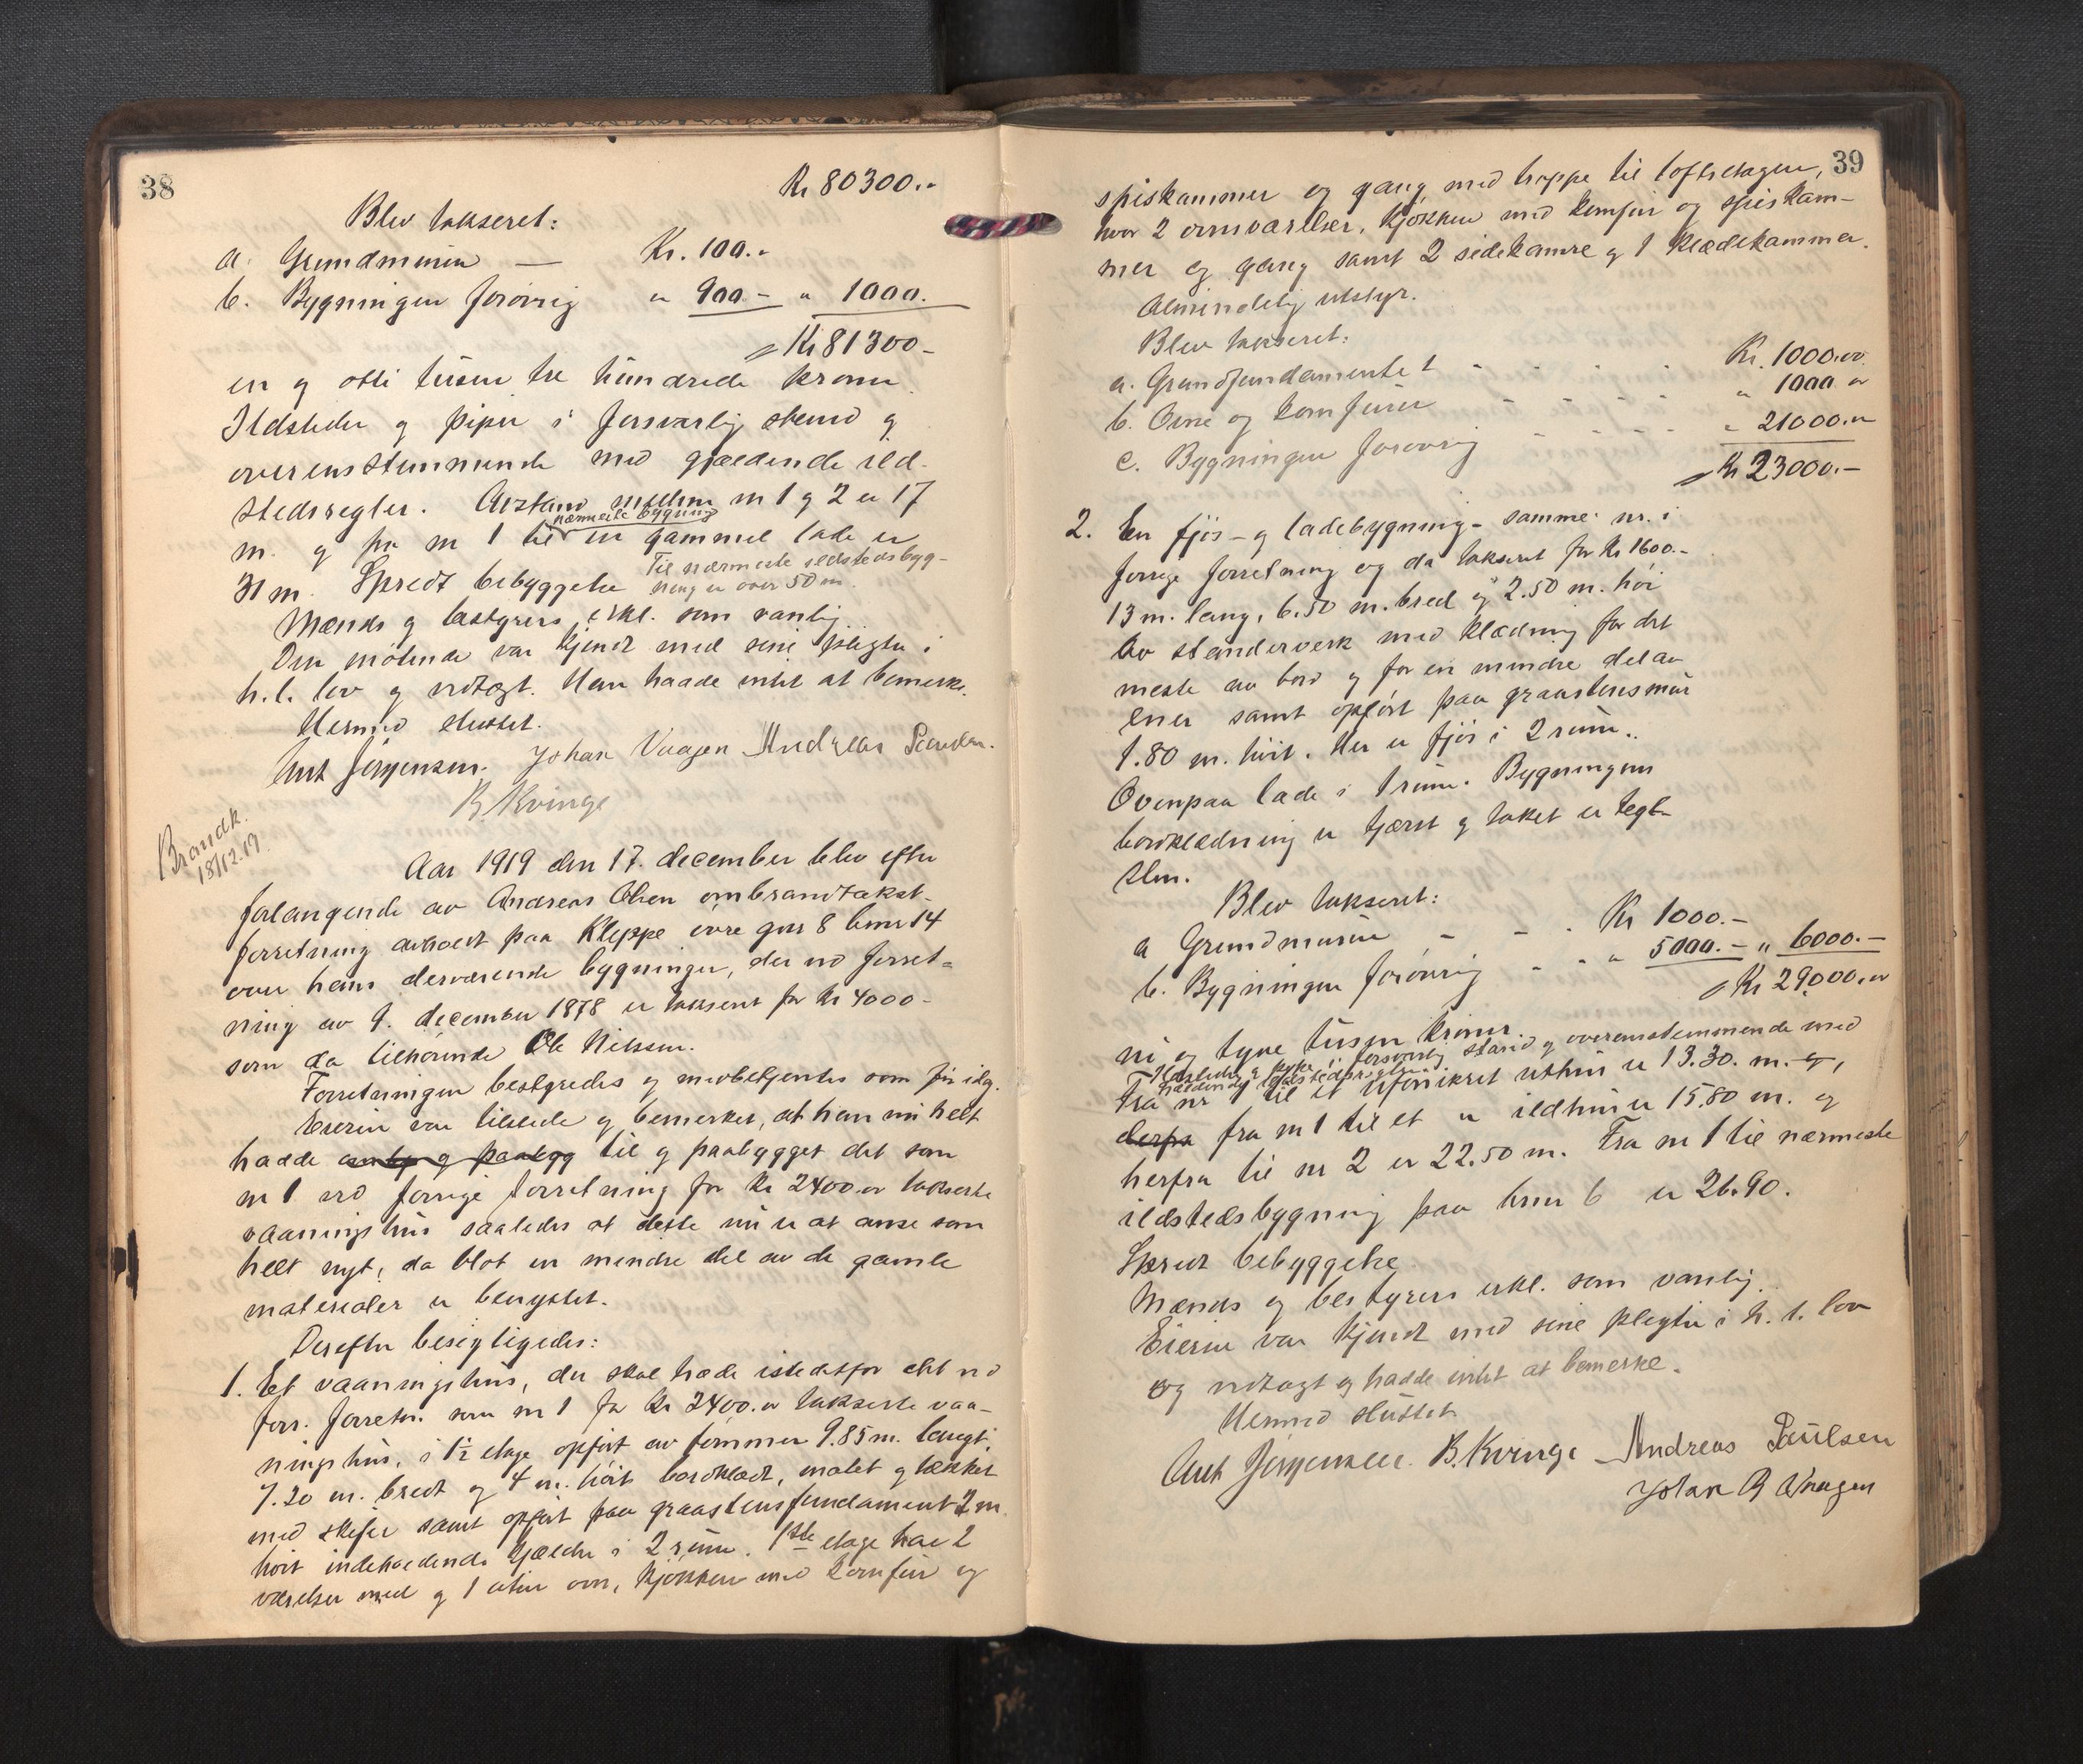 38
Kr 80300.-
Blev takseret:
a. Grundmuren — Kr. 100.-
b. Bygningen forøvrig " 900.- " 1000.
Kr 81300-
en og otti tusen tre hundrede kroner.
Ildsteder og piper i forsvarlig stand og
overensstemmende med gjældende ild-
stedsregler. Avstand mellem nr 1 og 2 er 17
m. og fra nr 1 til nærmeste bygning en gammel lade er
31 m. Spredt bebyggelse Til nærmeste ildstedsbyg-
ning er over 50 m.
Mænds og bestyrers erkl. som vanlig.
Den møtende var kjendt med sine pligter i
h. t. lov og vedtægt. Han havde intet at bemerke.
Hermed sluttet.
Ant Jørgensen. Johan Vaagen Andreas Paulsen.
B Kvinge
Brandk.
18/12.19.
Aar 1919 den 17. december blev efter
forlangende av Andreas Olsen ombrandtakst-
forretning avholdt paa Kleppe øvre gnr 8 bnr 14
over hans derværende bygninger, der ved forret-
ning av 9. december 1878 er takseret for Kr 4000-
som da tilhørende Ole Nilssen.
Forretningen bestyredes og medbetjentes som før idag.
Eieren var tilstede og bemerket, at han nu helt
hadde og paabygg til og paabygget det som
nr 1 ved forrige forretning for Kr 2400.00 takserte
vaaningshus saaledes at dette nu er at anse som
helt nyt, da blot en mindre del av de gamle
materialer er benyttet.
Derefter besigtigedes:
1. Et vaaningshus, der skal træde istedetfor det ved
forr. forretn. som nr 1 for Kr 2400.00 takserte vaa-
ningshus, i 1½ etage opført av tømmer 9.85 m. langt,
7.20 m. bredt og 4 m. høit bordklædt, malet og tækket
med skifer samt opført paa graastensfundament 2 m
høit indeholdende kjælder i 2 rum. 1ste etage har 2
værelser med og 1 uten ovn, kjøkken med komfur og
39
spiskammer og gang med trappe til loftsetagen,
hvor 2 ovnsværelser, kjøkken med komfur og spiskam-
mer og gang samt 2 sidekamre og 1 klædekammer.
Almindelig utstyr.
Blev takseret:
a. Grundfundamentet - - - - Kr. 1000.00
b. Ovne og komfurer - - - - " 1000 00
c. Bygningen forøvrig - - - - " 21000.00
Kr 23000.-
2. En fjøs- og ladebygning - samme nr. i
forrige forretning og da takseret for Kr 1600.-
13 m. lang, 6.50 m. bred og 2.50 m. høi
av stenderverk med klædning for det
meste av bord og for en mindre del av
ener samt opført paa graastensmur
1.80 m. høit. Her er fjøs i 2 rum..
Ovenpaa lade i 1 rum. Bygningens
bordklædning er tjæret og taket er tegl-
sten.
Blev takseret:
a Grundmuren - - - Kr 1000.-
b. Bygningen forøvrig - - - " 5000.- " 6000.-
Kr 29000.00
ni og tyve tusen kroner.
Ildsteder og piper i forsvarlig stand og overensstemmende med
gjældende ildstedsregler.
Fra nr 1 til et uforsikret uthus er 13.30. m. og,
derfra fra nr 1 til et ildhus er 15.80 m. og
herfra til nr 2 er 22.50 m. Fra nr 1 til nærmeste
ildstedsbygning paa bnr 6 er 26.90.
Spredt bebyggelse.
Mænds og bestyrers erkl. som vanlig.
Eieren var kjendt med sine plegter i h. t. lov
og vedtægt og hadde intet at bemerke.
Hermed sluttet.
Ant Jørgensen. B. Kvinge Andreas Paulsen
Johan A Vaagen